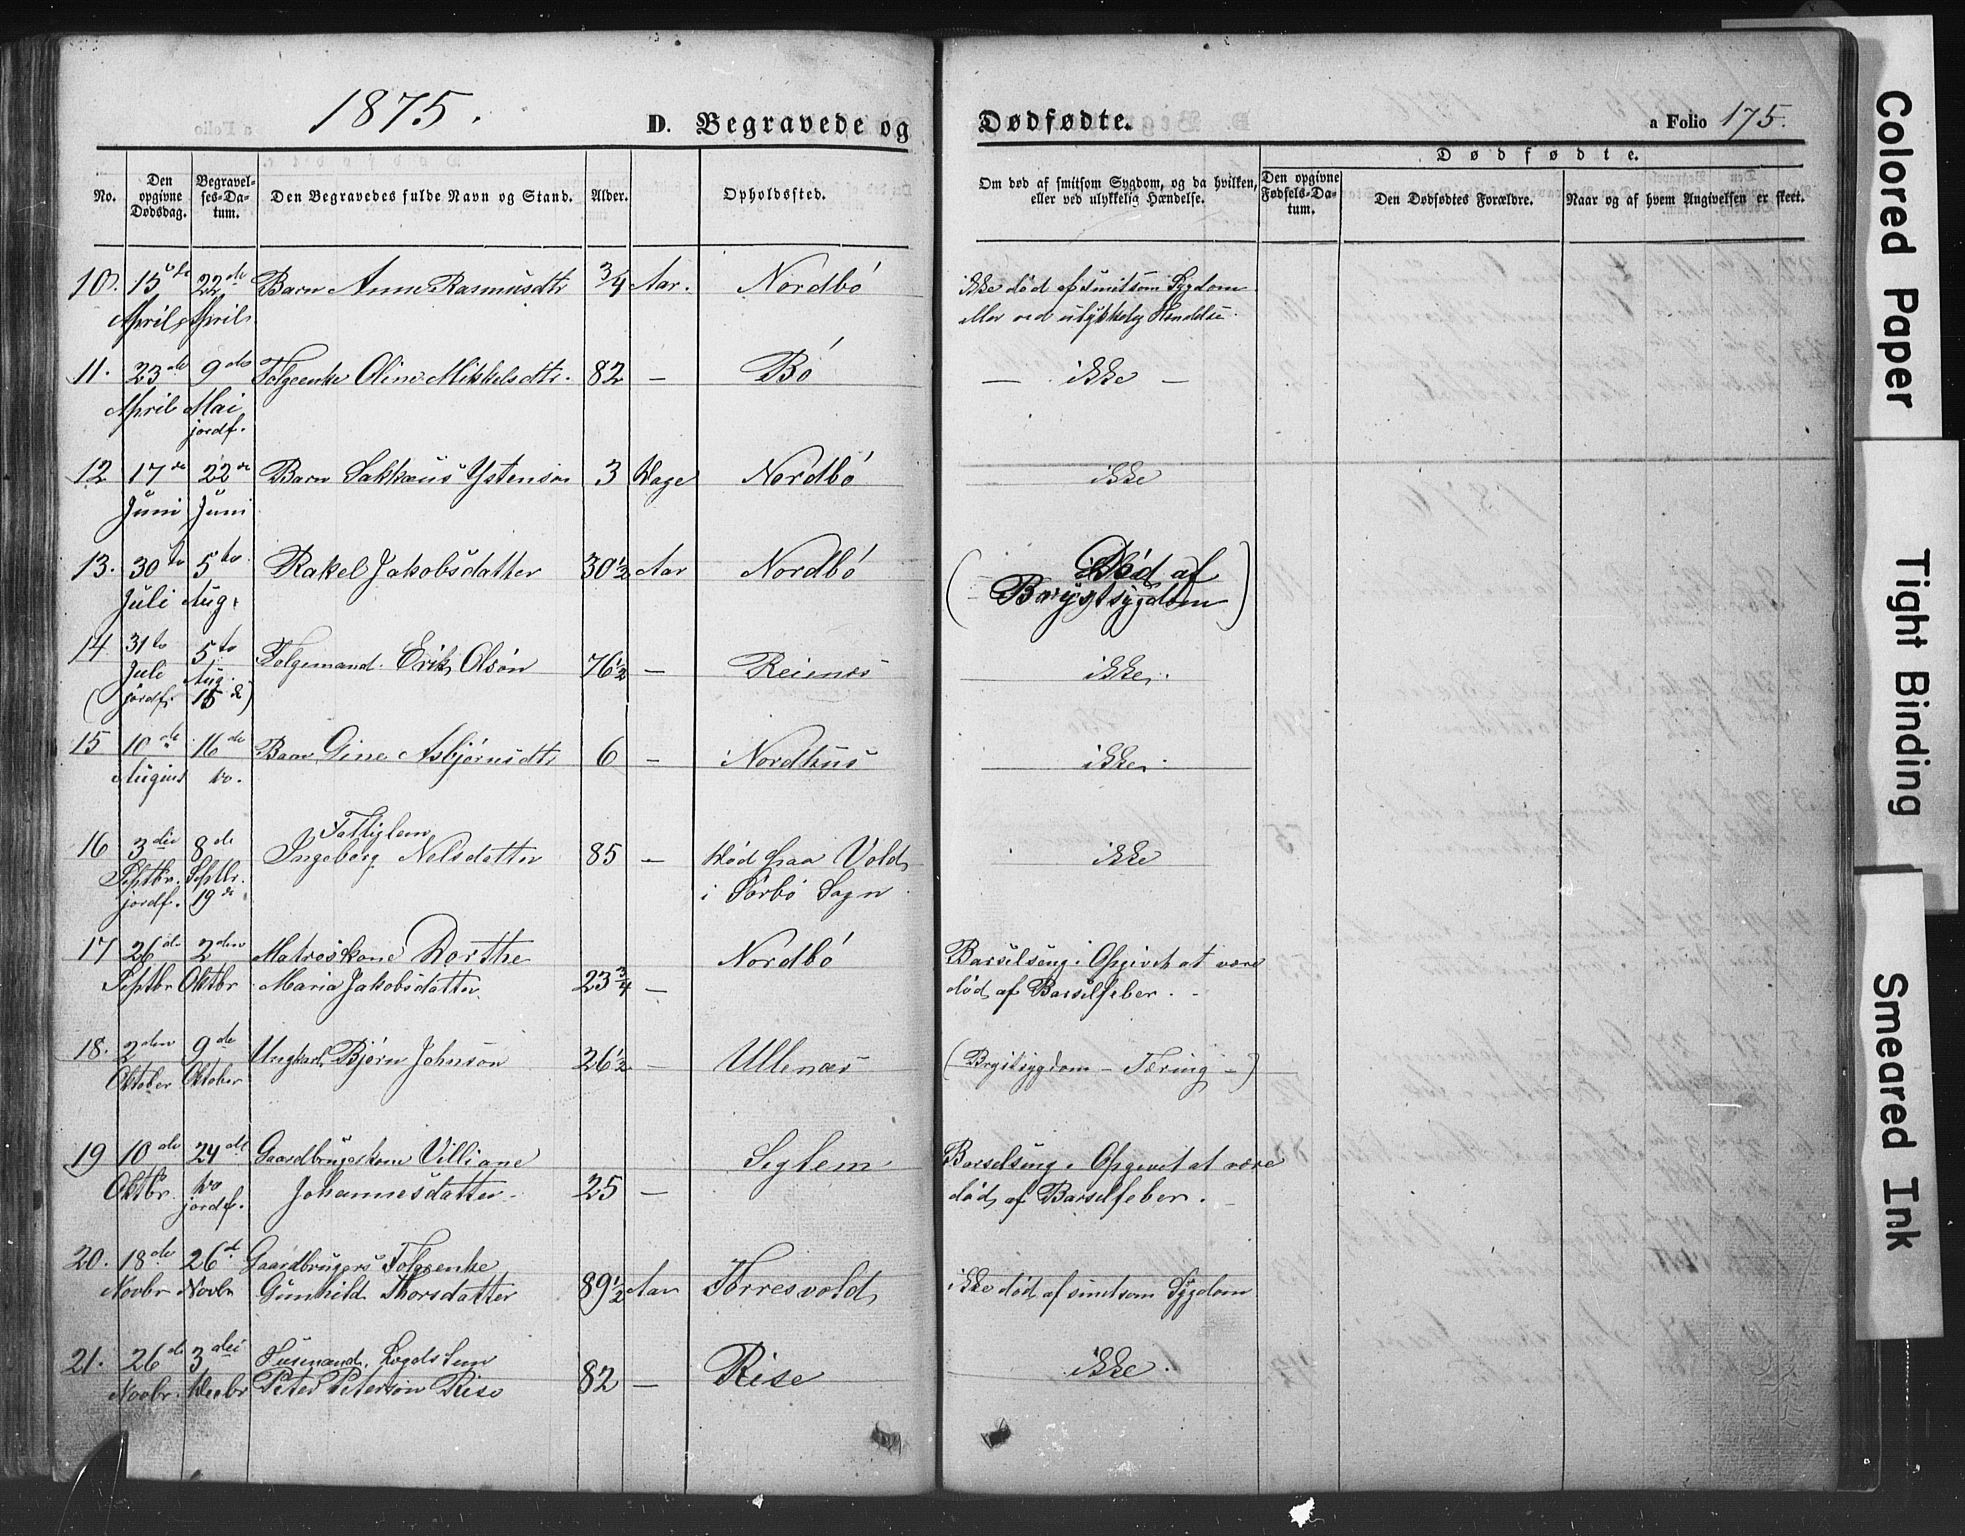 1875.
D. Begravede og Dødfødte.
a Folio 175.
No.
Den opgivne Dødsdag.
Begravelses-Datum.
Den Begravedes fulde Navn og Stand.
Alder.
Opholdssted.
Om død af smitsom Sygdom, og da hvilken,
eller ved ulykkelig Hændelse.
Dødfødte.
Den opgivne Fødsels-Datum.
Den Dødfødtes Forældre.
Naar og af hvem Angivelsen er skeet.
10. 15de 22de Barn Anne Rasmusdtr 3/4 Aar. Nordbö ikke død af smitsom Sygdom
April April eller ved ulykkelig Hendelse.
11. 23de 9de Folgeenke Oline Mikkelsdtr. 82 — Bö — ikke —
April Mai
jordf.
12 17de 22de Barn Sakkæus Ystensøn 3 Dage Nordbö ikke
Juni Juni
13. 30te 5te Rakel Jakobsdatter 30 1/2 Aar Nordbö (Død af
Juli Aug. Brystsygdom)
14 31te 5te Folgemand Erik Olsøn 76 1/2 — Reienes ikke.
Juli Aug.
(jordf. 15de)
15 10de 16de Barn Gine Asbjørnsdtr 6 — Nordhus ikke.
August do.
16 3die 8de Fattiglem
Ingeborg Nelsdatter 85 — død paa Vold ikke
Septbr. Septbr. i Sörbö Sogn
jordf. 19de
17 26de 2den Matroskone Dorthe Nordbö Barselseng; Opgivet at være
Septbr Oktbr Maria Jakobsdatter 23 3/4 — død af Barselfeber.
18. 2den 9de Ungkarl Bjørn Johnsøn 26 1/2 — Ullenæs (Brystsygdom - Tæring -)
Oktober Oktober
19 10de 24de Gaardbrugerkone Villiane Seglem Barselseng; Opgivet at være
Oktbr. do Johannesdatter 25 — død af Barselfeber.
jordf.
20. 18de 26de Gaardbrugers Folgeenke
Novbr Novbr Gunhild Thorsdatter 89 1/2 Aar Torresvold ikke død af smitsom Sygdom
21. 26de 3die Husmand. Legdslem
Novbr. Decbr Peter Petersøn Rise 82 — Rise ikke.
Colored Paper
Tight Binding
Smeared Ink